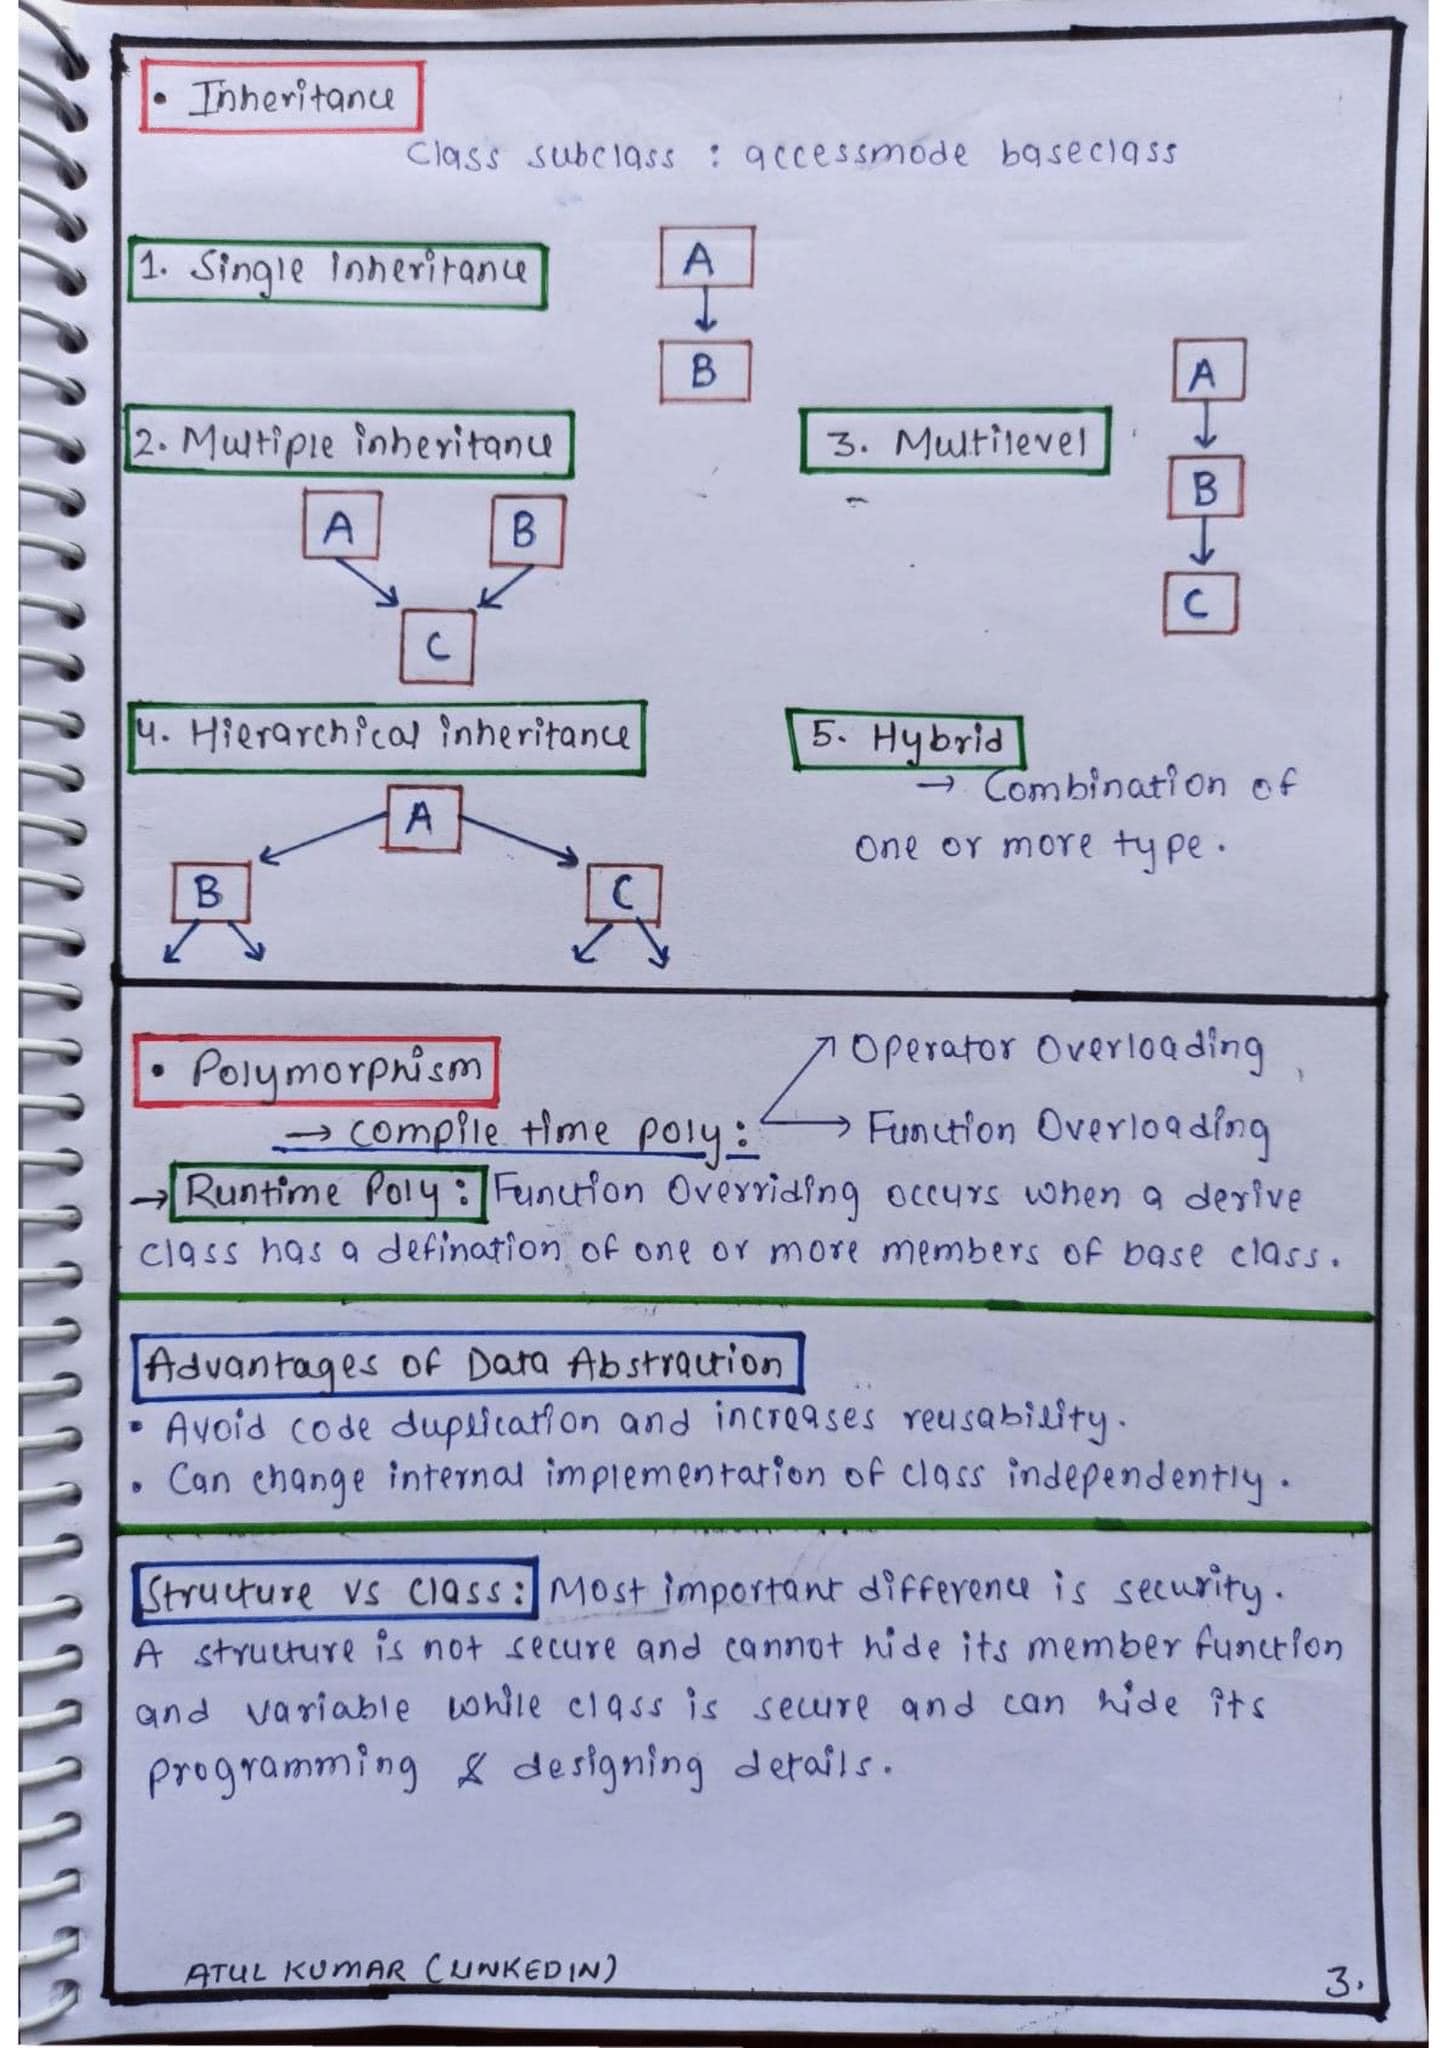 • Inheritance
Class subclass : accessmode baseclass
1. Single inheritance
A
B
2. Multiple inheritance
A B
C
3. Multilevel
A
B
C
4. Hierarchical inheritance
A
B C
5. Hybrid
→ Combination of
one or more type.
• Polymorphism
→ compile time poly :
Operator Overloading
→ Function Overloading
→ Runtime Poly : Function Overriding occurs when a derive
class has a defination of one or more members of base class.
Advantages of Data Abstraction
• Avoid code duplication and increases reusability.
• Can change internal implementation of class independently.
Structure vs class : Most important difference is security.
A structure is not secure and cannot hide its member function
and variable while class is secure and can hide its
programming & designing details.
ATUL KUMAR (LINKEDIN)
3.